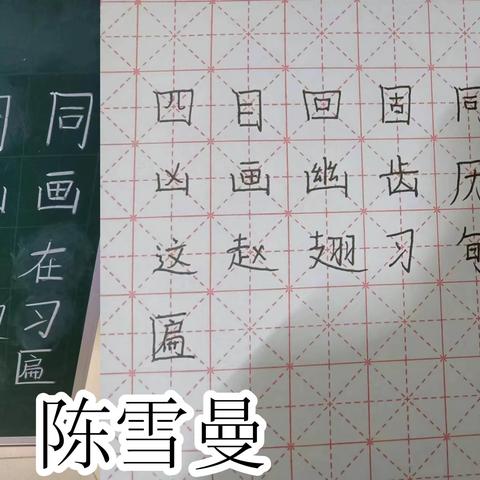 同
画
在
习
匾
四 目 回 固 同
凶 画 幽 齿 历
这 赵 翅 习
匾
陈雪曼